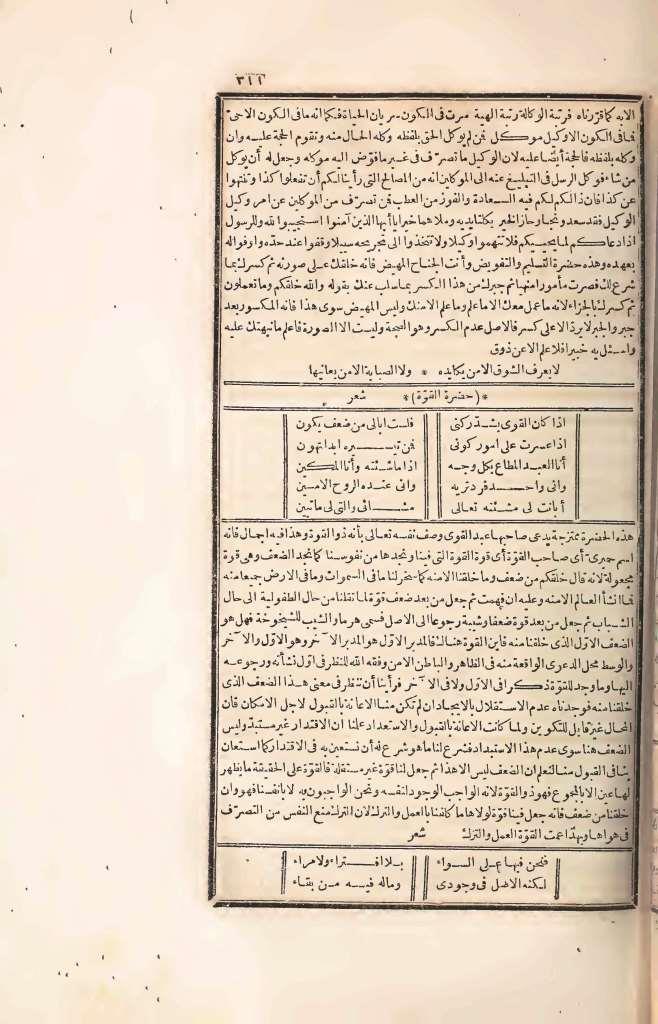 ٣١١
الابه كما قررناه فرتبة الوكالة رتبة الهية سرت فى الكون سريان الحياة فكما انه ما فى الكون الا حى
فما فى الكون الا وكيل موكل فمن لم يوكل الحق بلفظه وكله الحال منه وتقوم الحجة عليه وان
وكله بلفظه فالحجة أيضا عليه لان الوكيل ما تصرف فى غير ما فوض اليه موكله وجعل له أن يوكل
من شاء فوكل الرسل فى التبليغ عنه الى الموكلين انه من المصالح التى رأينا لكم أن تفعلوا كذا وتنتهوا
عن كذا فان ذالكم لكم فيه السعادة والفوز من العطب فمن تصرف من الموكلين عن امر وكيل
الوكيل فقد سعد ونجا وحاز الخير بكلتا يديه وملأهما خيرا يا أيها الذين آمنوا استجيبوا لله وللرسول
اذا دعاكم لما يحييكم فلا تتهموا وكيلا ولا تتخذوا الى تجريحه سبيلا وقفوا عند حده وأوفوا له
بعهده وهذه حضرة التسليم والتفويض وأنت الجناح المهيض فانه خلقك على صورته ثم كسرك بما
شرع لك فصرت مأمورا منهيا ثم جبرك من هذا الكسر بما سلب عنك بقوله والله خلقكم وما تعملون
ثم كسرك بالجزاء لانه ما عمل معك الا ما علم وما علم الا منك وليس المهيض سوى هذا فانه المكسور بعد
جبر والجبر لا يرد الا على كسر فالاصل عدم الكسر وهو الصحة وليست الا الصورة فاعلم ما نبهتك عليه
واسئل به خبيرا فلا علم الا عن ذوق
لا يعرف الشوق الا من يكابده * ولا الصبابة الا من يعانيها
*(حضرة القوة)* شعر
اذا كان القوى يشد ركنى فلست ابالى من ضعف يكون
اذا عسرت على امور كونى فمن تيسيره ابدا تهون
أنا العبد المطاع بكل وجه اذا ما شئته وأنا المكين
وانى واحد فرد تريه وانى عنده الروح الامين
أبانت لى مشئته تعالى مشائى والتى لى ما تبين
هذه الحضرة ممتزجة يدعى صاحبها عبد القوى وصف نفسه تعالى بأنه ذو القوة وهذا فيه اجمال فانه
اسم حمرى أى صاحب القوة أى قوة القوة التى فينا ونجدها من نفوسنا كما نجد الضعف وهى قوة
مجعولة لانه قال خلقكم من ضعف وما خلقنا الا منه كما سخر لنا ما فى السموات وما فى الارض جميعا منه
فما انشأ العالم الا منه وعليه ان فهمت ثم جعل من بعد ضعف قوة لما نقلنا من حال الطفولية الى حال
الشباب ثم جعل من بعد قوة ضعفا وشيبة رجوعا الى الاصل فسمى هرما والشيب للشيخوخة فهل هو
الضعف الاول الذى خلقنا منه فاين القوة هناك فالمدبر الاول هو المدبر الآخر وهو الاول والآخر
والوسط محل الدعوى الواقعة منه فى الظاهر والباطن الا من وفقه الله للنظر فى اول نشأته ورجوعه
اليها وما وجد للقوة ذكرا فى الاول ولا فى الآخر فرأينا أن ننظر فى معنى هذا الضعف الذى
خلقنا منه فوجدناه عدم الاستقلال بالايجاد ان لم تكن منا الاعانة بالقبول لاجل الامكان فان
المحال غير قابل للتكوين ولما كانت الاعانة بالقبول والاستعداد علمنا ان الاقتدار غير مستبد وليس
الضعف هنا سوى عدم هذا الاستبداد فشرع لنا ما هو شرع له أن نستعين به فى الاقتدار كما استعان
بنا فى القبول منا لنعلم ان الضعف ليس الا هذا ثم جعل لنا قوة غير مستقلة فالقوة على الحقيقة ما يظهر
لها عين الا بالمجموع فهو ذو القوة لانه الواجب الوجود لنفسه ونحن الواجبون به لا بأنفسنا فهو وان
خلقنا من ضعف فانه جعل فينا قوة لولاها ما كلفنا بالعمل والترك لان الترك منع النفس من التصرف
فى هواها وبهذا عمت القوة العمل والترك شعر
فنحن فيها على السواء بلا افتراء ولا مراء
لكنه الاصل فى وجودى وما له فيه من بقاء